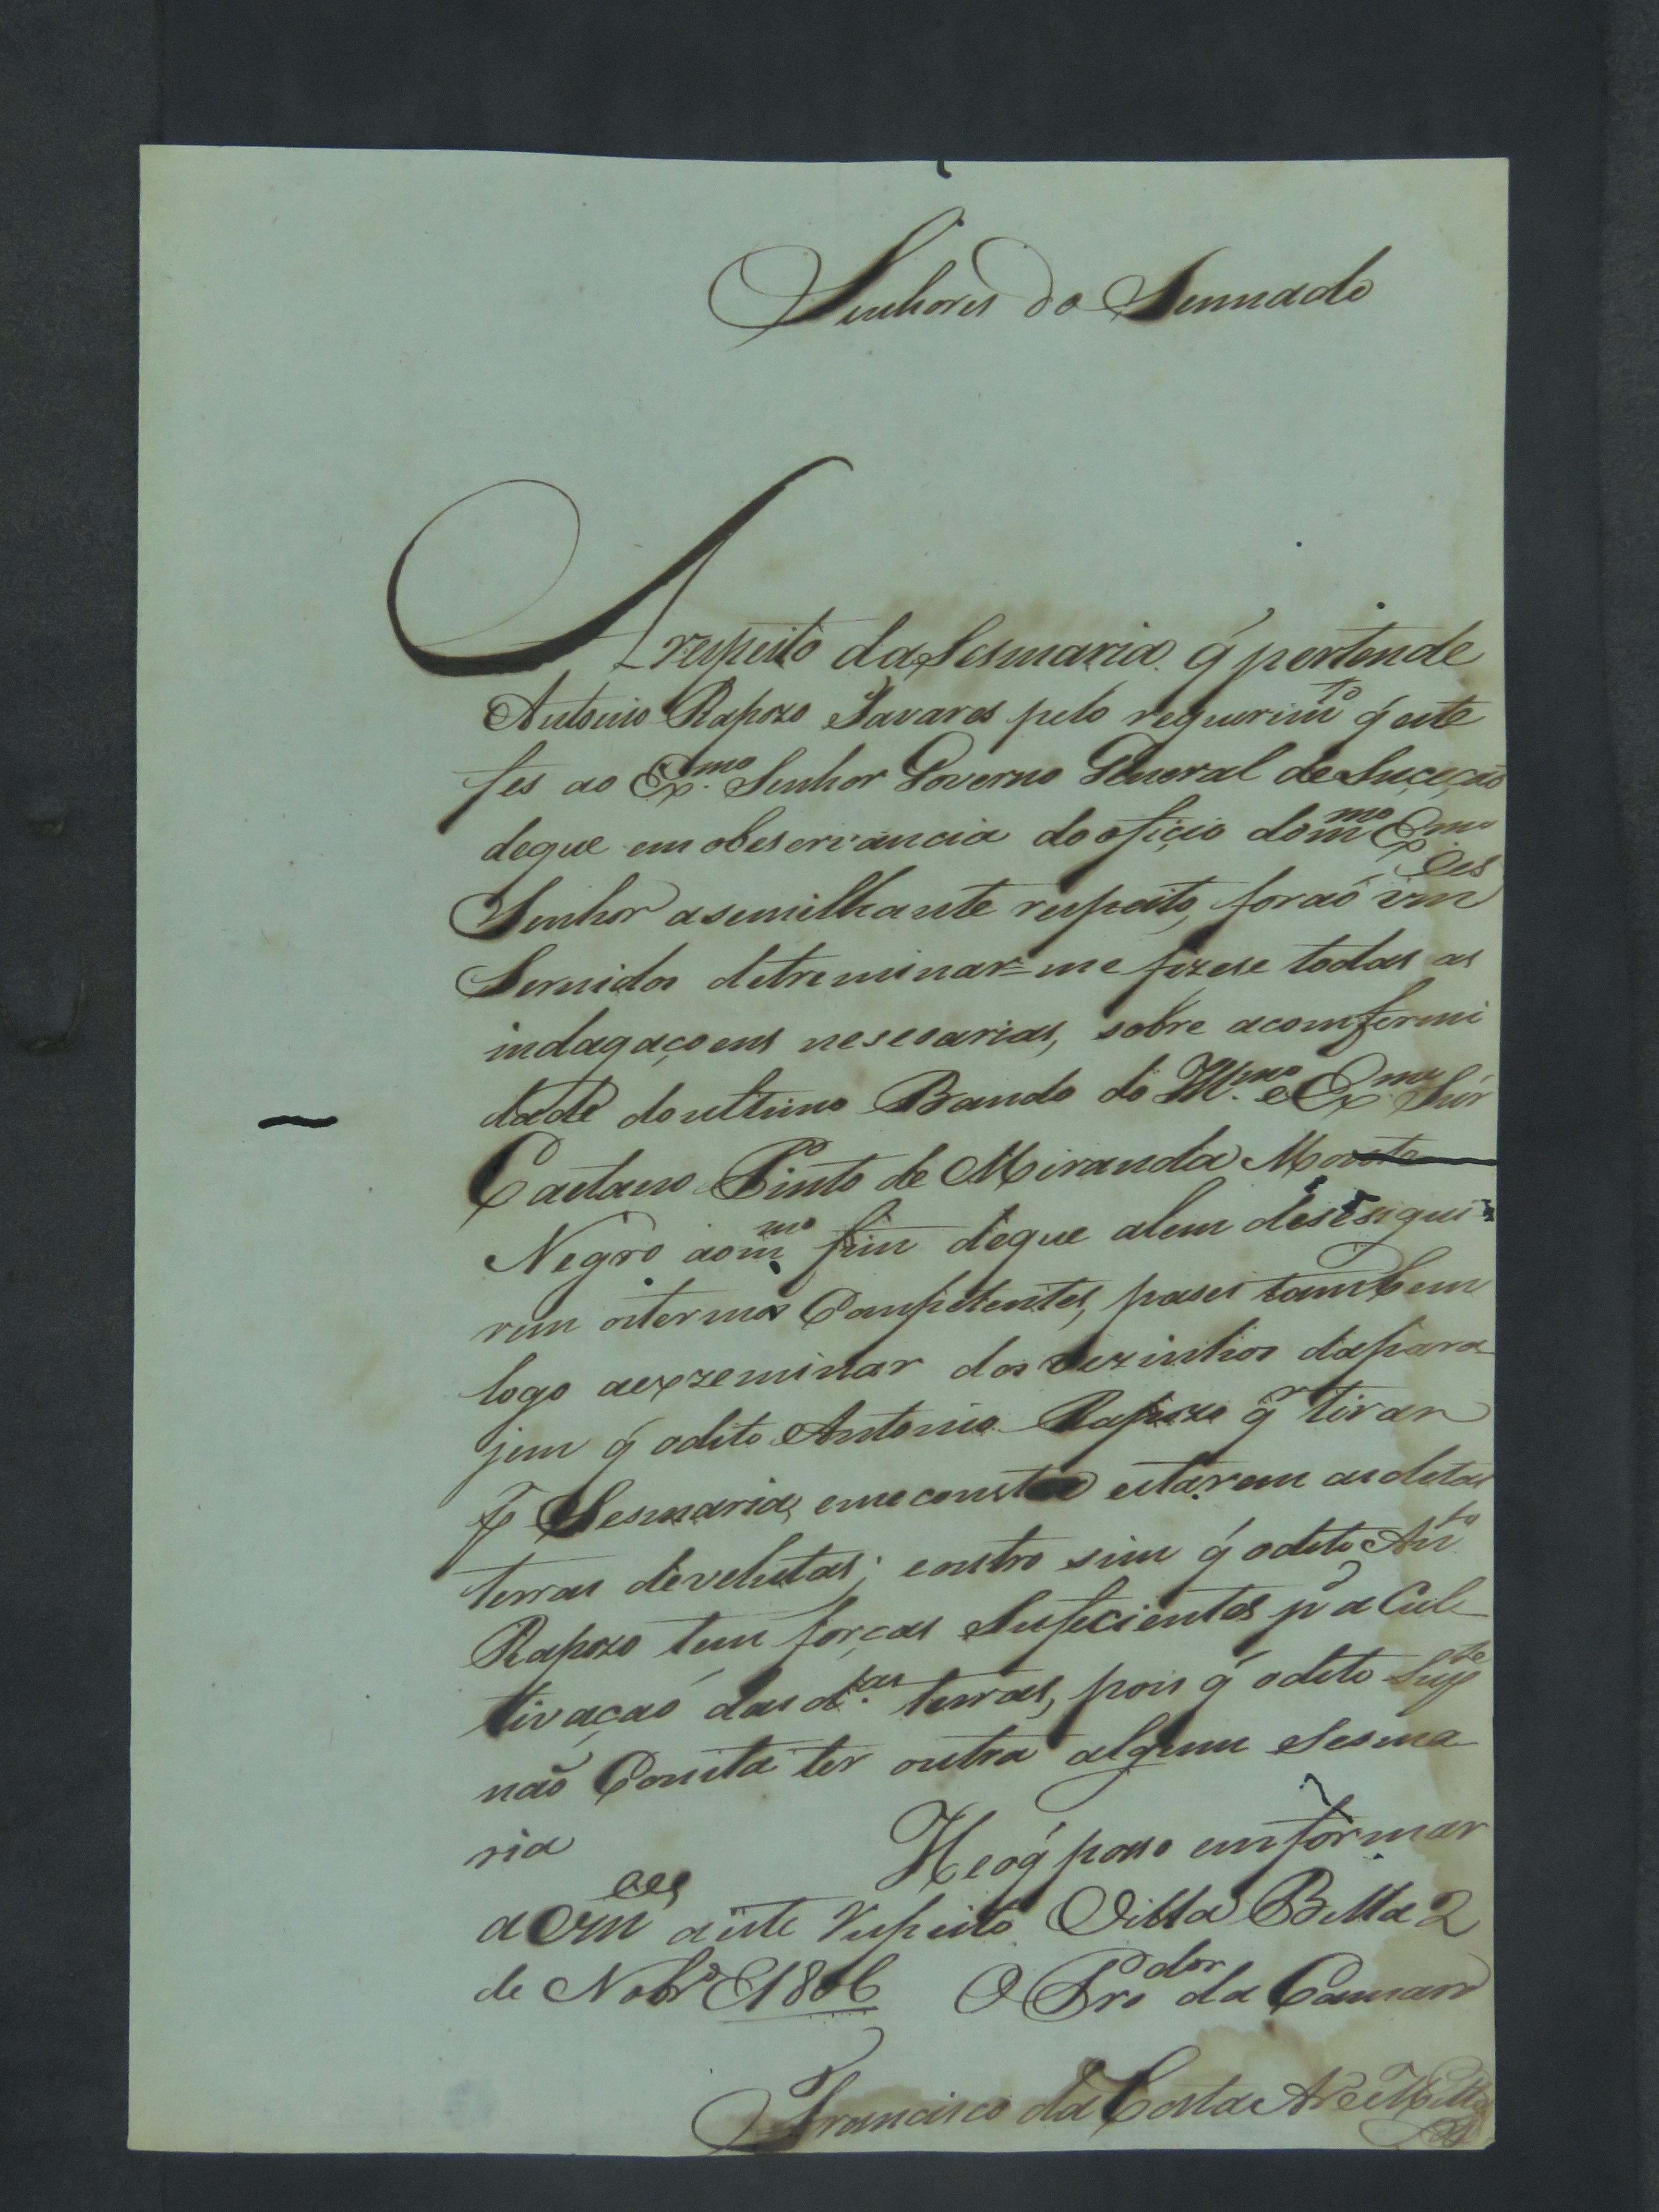 Senhores do Sennado
A respeito da Sesmaria q̃ pertende
Antonio Rapozo Tavares pelo requerim.to q̃ este
fes ao Ex.mo Senhor Governo General de Suceçaõ
deque em obeservancia do oficio dom.mo Ex.mo
Senhor asemilhante respeito, foraõ vm.ces
Servidos detreminar=me fizese todas as
indagaçoens nesesarias, sobre acomformi
dade do ultimo Bando do Ill.mo e Ex.mo Snr̃
Caetano Pinto de Miranda Monte
Negro aom.mo fim deque alem desesigui
rem os termos Conpetentes, pasei tambem
logo aexzeminar dos vezinhos dapara
jem q̃ odito Antonio Rapozo q.r tirar
p Sesmaria, eme consta estarem as ditas
terras develutas; e outro sim q̃ odito An.to
Rapozo tem forças Sufecientes p.a a Cul
tivaçaõ das d.tas terras, pois q̃ odito Sup.te
naõ Consta ter outra algum Sesma
ria
He oq̃ poso emformar
a vm.ces aeste respeito Villa Bella 2
de Nobr.o 1806 O Pro.dor da Camara
Francisco da Costa